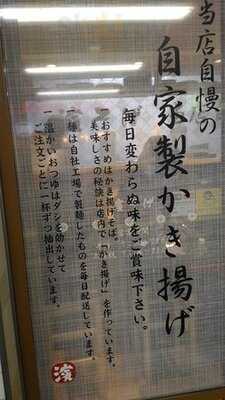 当店自慢の
自家製かき揚げ
毎日変わらぬ味をご賞味下さい。
一おすすめはかき揚げそば。
美味しさの秘訣は店内で「かき揚げ」を作っています。
一麺は自社工場で製麺したものを毎日配送しています。
一温かいおつゆはダシを効かせて
ご注文ごとに一杯ずつ抽出しています。
濱